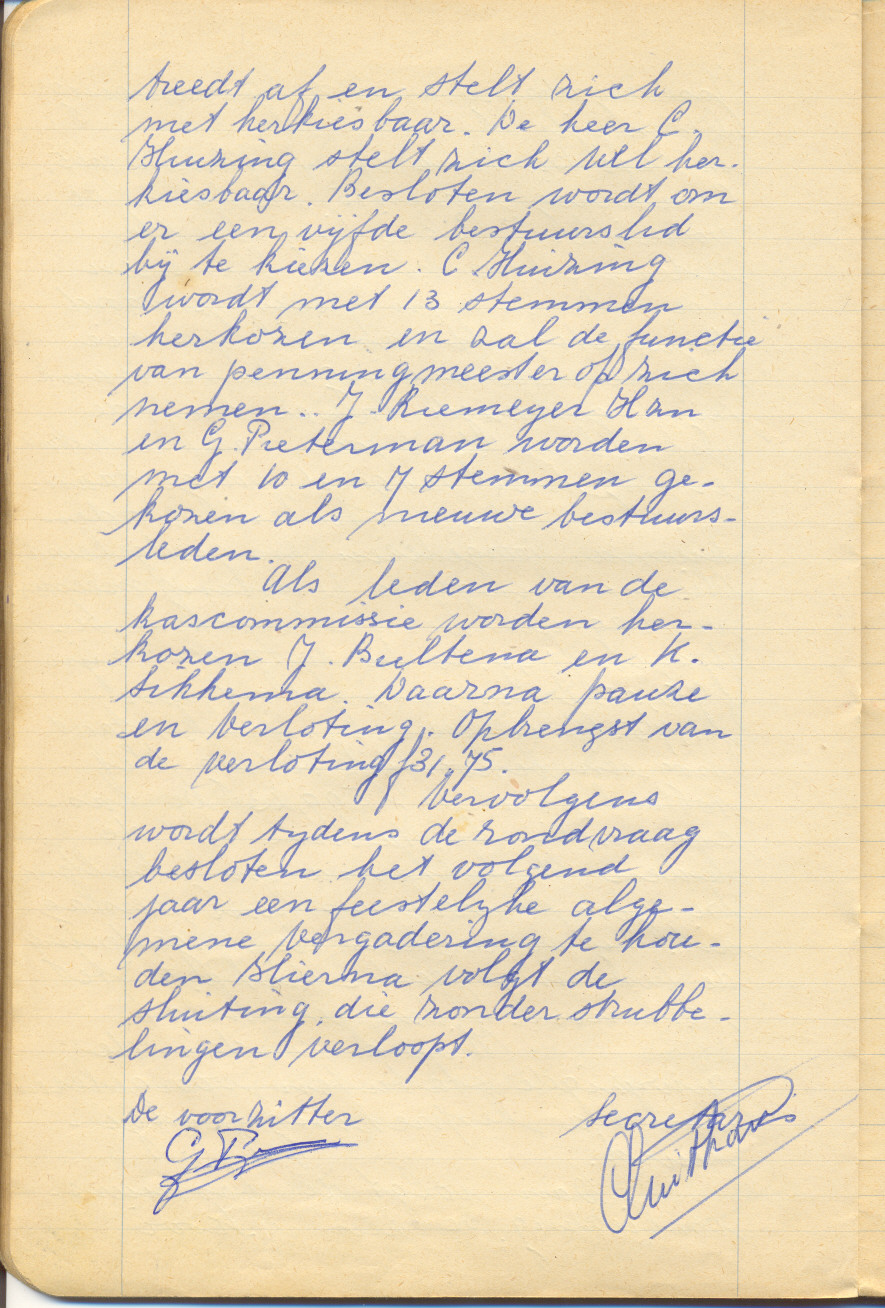 treedt af en stelt zich
niet herkiesbaar. De heer C.
Huizing stelt zich wel her-
kiesbaar. Besloten wordt om
er een vijfde bestuurslid
bij te kiezen. C Huizing
wordt met 13 stemmen
herkozen en zal de functie
van penningmeester op zich
nemen.. J. Riemeyer Hzn
en G. Pieterman worden
met 10 en 7 stemmen ge-
kozen als nieuwe bestuurs-
leden.
Als leden van de
kascommissie worden her-
kozen J. Bultena en K.
Sikkema. Daarna pauze
en Verloting. Opbrengst van
de verloting f31,75.
Vervolgens
wordt tydens de rondvraag
besloten het volgend
jaar een feestelyke alge-
mene Vergadering te hou-
den Hierna volgt de
sluiting, die zonder strubbe-
lingen verloopt.
De voorzitter
Secretaris